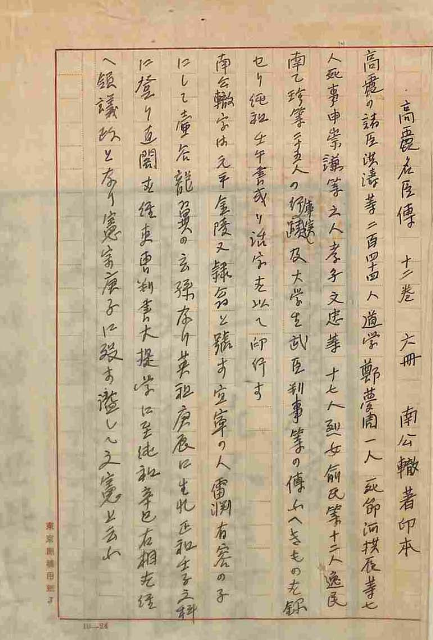 高麗名臣傳 十二卷 六冊 南公轍著印本
高麗の諸臣洪濤等二百四十四人道学鄭夢周一人死節河拱辰等七
人死事申崇謙等七人孝子文忠等十七人烈女俞氏等十二人逸民
南乙珍等 五人の行蹟及大学生武臣判事等の傳ふへきものを録
せり純祖壬午書成り活字を以て印行す
南公轍字は元平金陵又穎翁と號す宜寧の人雷淵有容の子
にして壷谷龍翼の玄孫なり英祖庚辰に生れ正祖壬子文科
に登り直閣 經吏曹判書大提学に至純祖辛巳右相を經
へ領議政となり憲宗庚子に歿す謚して文憲と云ふ
10—24